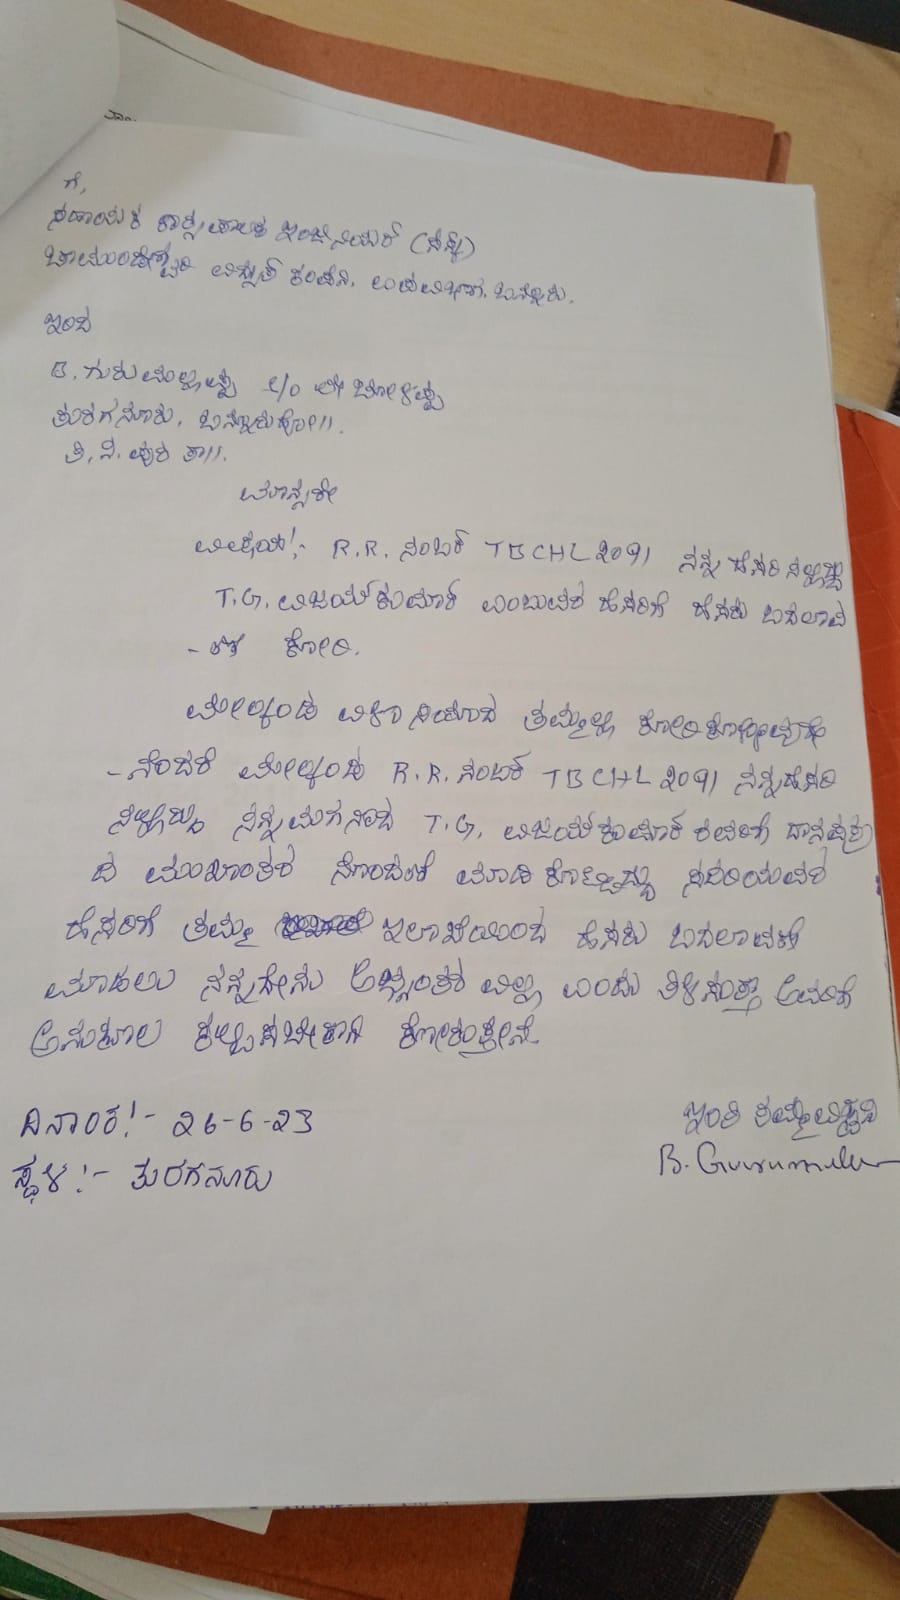 ಗೆ,
ಸಹಾಯಕ ಕಾರ್ಯಪಾಲಕ ಇಂಜಿನಿಯರ್ (ವಿದ್ಯುತ್)
ಚಾಮುಂಡೇಶ್ವರಿ ವಿದ್ಯುತ್ ಕಂಪನಿ, ಉಪವಿಭಾಗ, ಬನ್ನೂರು.
ಇಂದ
B. ಗುರುಮಲ್ಲಪ್ಪ S/O ಲೇ ಬೋಳಪ್ಪ
ತುರಗನೂರು, ಬನ್ನೂರುಹೋ||.
ತಿ. ನ. ಪುರ ತಾ||.
ಮಾನ್ಯರೇ
ವಿಷಯ:- R.R. ನಂಬರ್ TBCHL 2091 ನನ್ನ ಹೆಸರಿನಲ್ಲಿದ್ದು
T.G. ವಿಜಯ್‌ಕುಮಾರ್ ಎಂಬುವರ ಹೆಸರಿಗೆ ಹೆಸರು ಬದಲಾವ
-ಣೆ ಕೋರಿ.
ಮೇಲ್ಕಂಡ ವಿಳಾಸಿಯಾದ ತಮ್ಮಲ್ಲಿ ಕೋರಿಕೊಳ್ಳುವುದೇ
-ನೆಂದರೆ ಮೇಲ್ಕಂಡ R.R. ನಂಬರ್ TBCHL 2091 ನನ್ನಹೆಸರಿ
ನಲ್ಲಿದ್ದು ನನ್ನಮಗನಾದ T.G. ವಿಜಯ್‌ಕುಮಾರ್ ರವರಿಗೆ ದಾನಪತ್ರ
ದ ಮುಖಾಂತರ ನೊಂದಣಿ ಮಾಡಿಕೊಟ್ಟಿದ್ದು ಸದರಿಯವರ
ಹೆಸರಿಗೆ ತಮ್ಮ ಇಲಾಖೆಯಿಂದ ಹೆಸರು ಬದಲಾವಣೆ
ಮಾಡಲು ನನ್ನದೇನು ಅಭ್ಯಂತರವಿಲ್ಲ ಎಂದು ತಿಳಿಸುತ್ತಾ ಅವರಿಗೆ
ಅನುಕೂಲ ಕಲ್ಪಿಸಬೇಕಾಗಿ ಕೋರುತ್ತೇನೆ.
ದಿನಾಂಕ:- 26-6-23
ಇಂತಿ ತಮ್ಮವಿಶ್ವಾಸಿ
ಸ್ಥಳ:- ತುರಗನೂರು